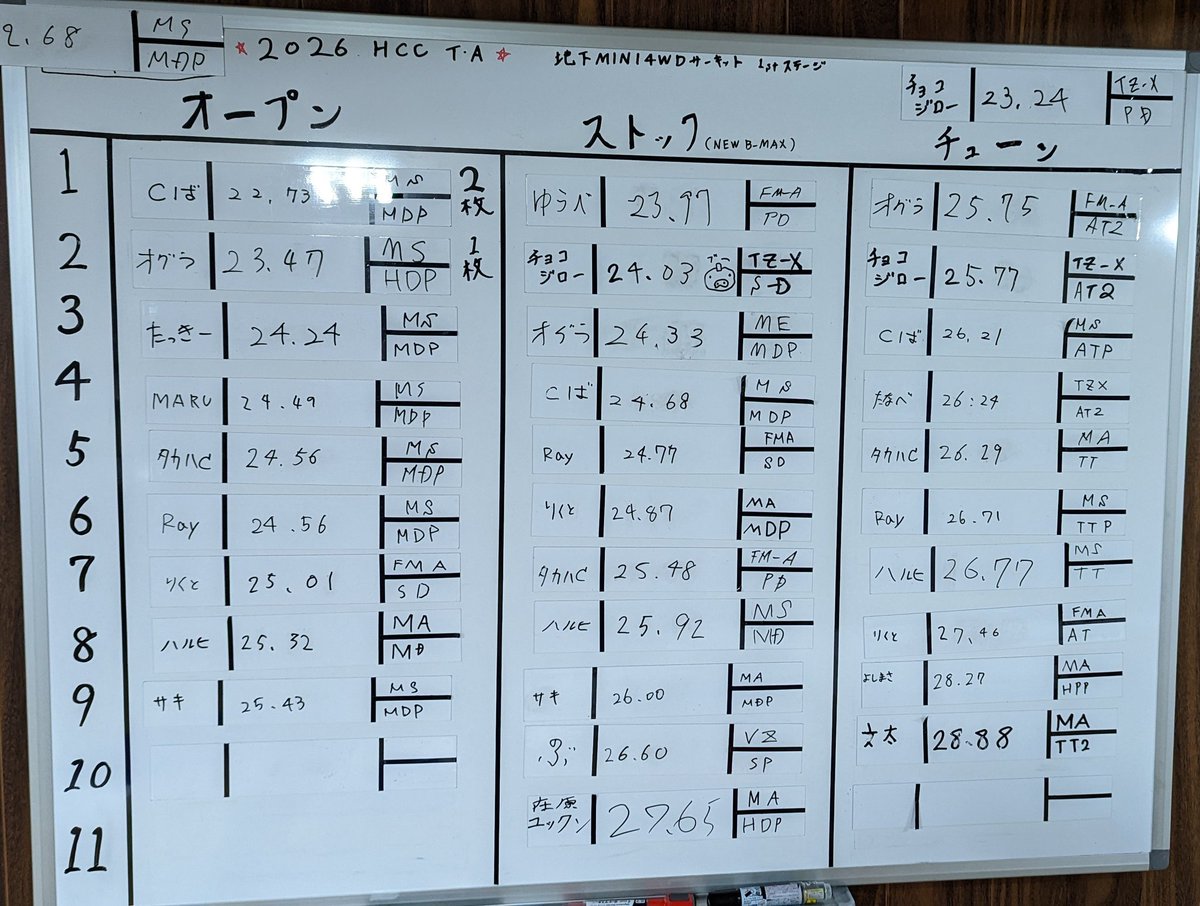 2.68 MS
MDP
☆2026. HCC T.A☆ 地下MINI4WDサーキット 1stステージ
チョコジロー 23.24 TZ-X
PD
オープン
1 こば 22.73 MS 2枚
MDP
2 オグラ 23.47 MS 1枚
HDP
3 たっきー 24.24 MS
MDP
4 MARU 24.49 MS
MDP
5 タカハC 24.56 MS
MDP
6 Ray 24.56 MS
MDP
7 りくと 25.01 FMA
SD
8 ハルヒ 25.32 MA
MD
9 サキ 25.43 MS
MDP
10
11
ストック(NEW B-MAX)
ゆうべ 23.97 FM-A
PD
チョコジロー 24.03 ブー TZ-X
SD
オグラ 24.33 ME
MDP
こば 24.68 MS
MDP
Ray 24.77 FMA
SD
りくと 24.87 MA
MDP
タカハC 25.48 FM-A
PD
ハルヒ 25.92 MS
MD
サキ 26.00 MA
MDP
ぶぅ 26.60 VZ
SP
在原ユックン 27.65 MA
HDP
チューン
オグラ 25.75 FM-A
AT2
チョコジロー 25.77 TZ-X
AT2
こば 26.21 MS
ATP
たなべ 26:24 TZX
AT2
タカハC 26.29 MA
TT
Ray 26.71 MS
TTP
ハルヒ 26.77 MS
TT
りくと 27.46 FMA
AT
よしまさ 28.27 MA
HPP
太 28.88 MA
TT2